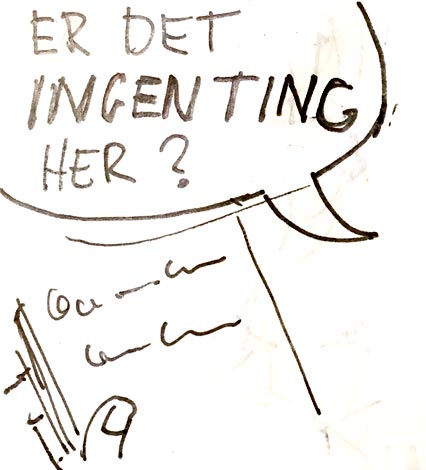 ER DET
INGENTING
HER?